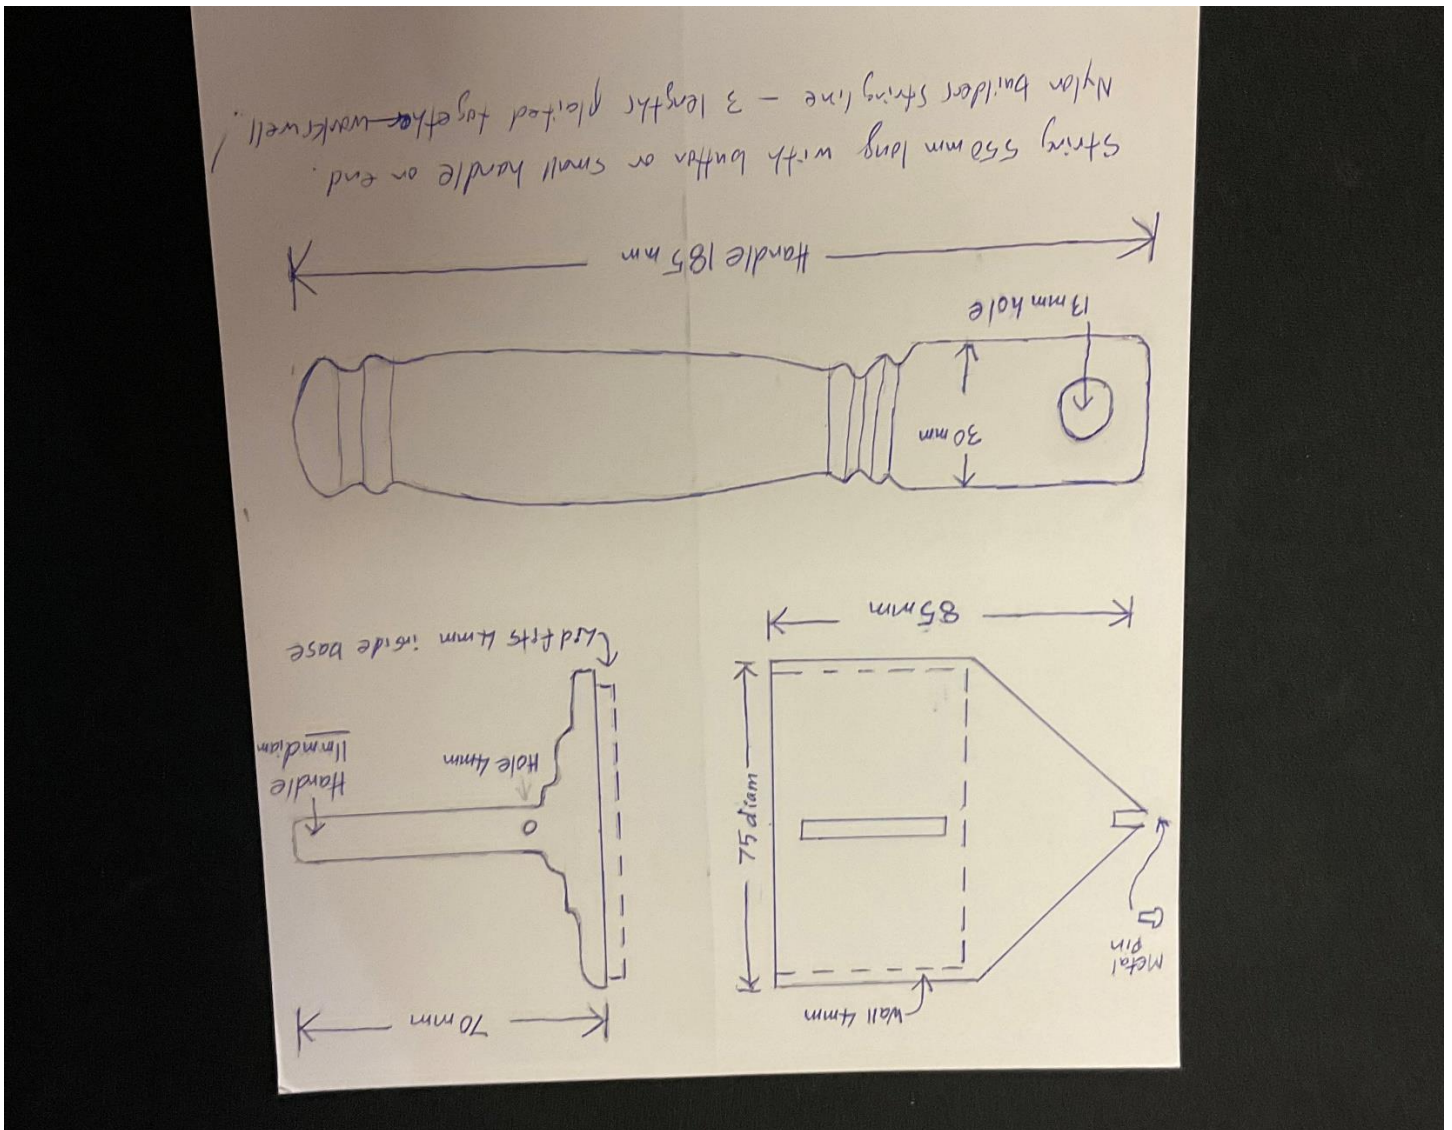 Wall 4mm
70 mm
Metal
Pin
75 diam
Hole 4mm
Handle
11mm diam
Lid fits 4mm inside base
85mm
30 mm
13mm hole
Handle 185 mm
String 550 mm long with button or small handle on end.
Nylon builders stringline – 3 lengths plaited together works well!